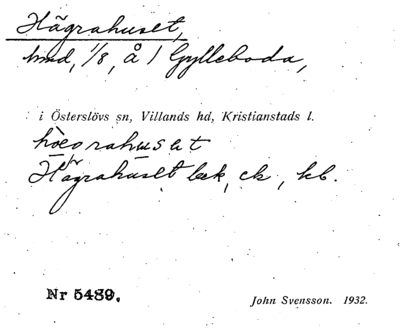 Hägrahuset,
hmd, 1/8, å 1 Gylleboda,
i Österslövs sn, Villands hd, Kristianstads l.
Hägrahuset bek, ck, kb.
Nr 5489.
John Svensson. 1932.